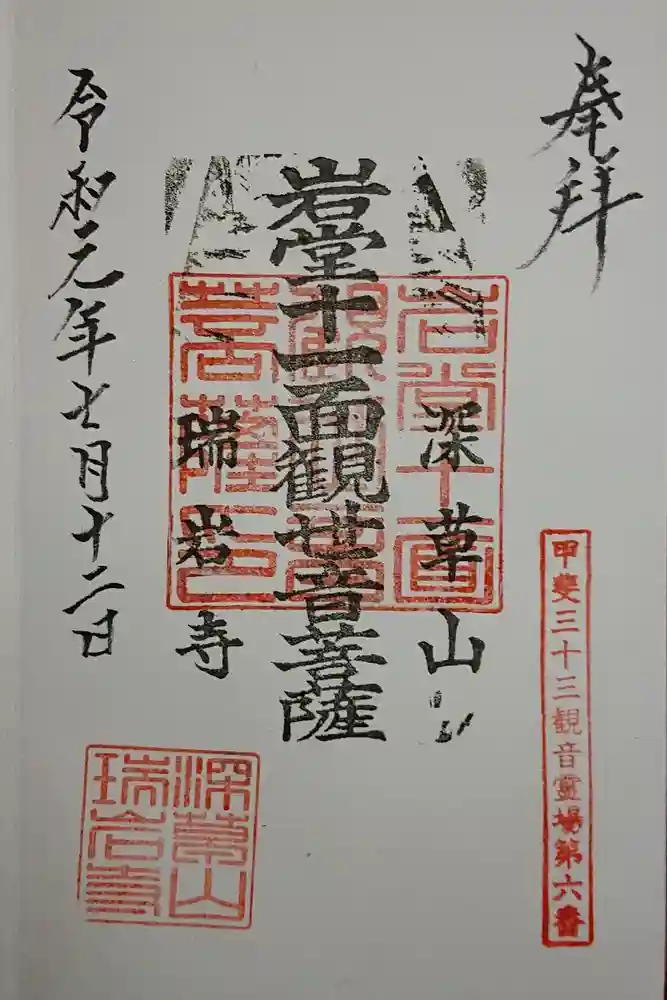 奉拝
甲斐三十三観音霊場第六番
深草山
岩堂十一面観世音菩薩
瑞岩寺
令和元年七月十二日
岩堂十一面観世音菩薩
深草山
瑞岩寺